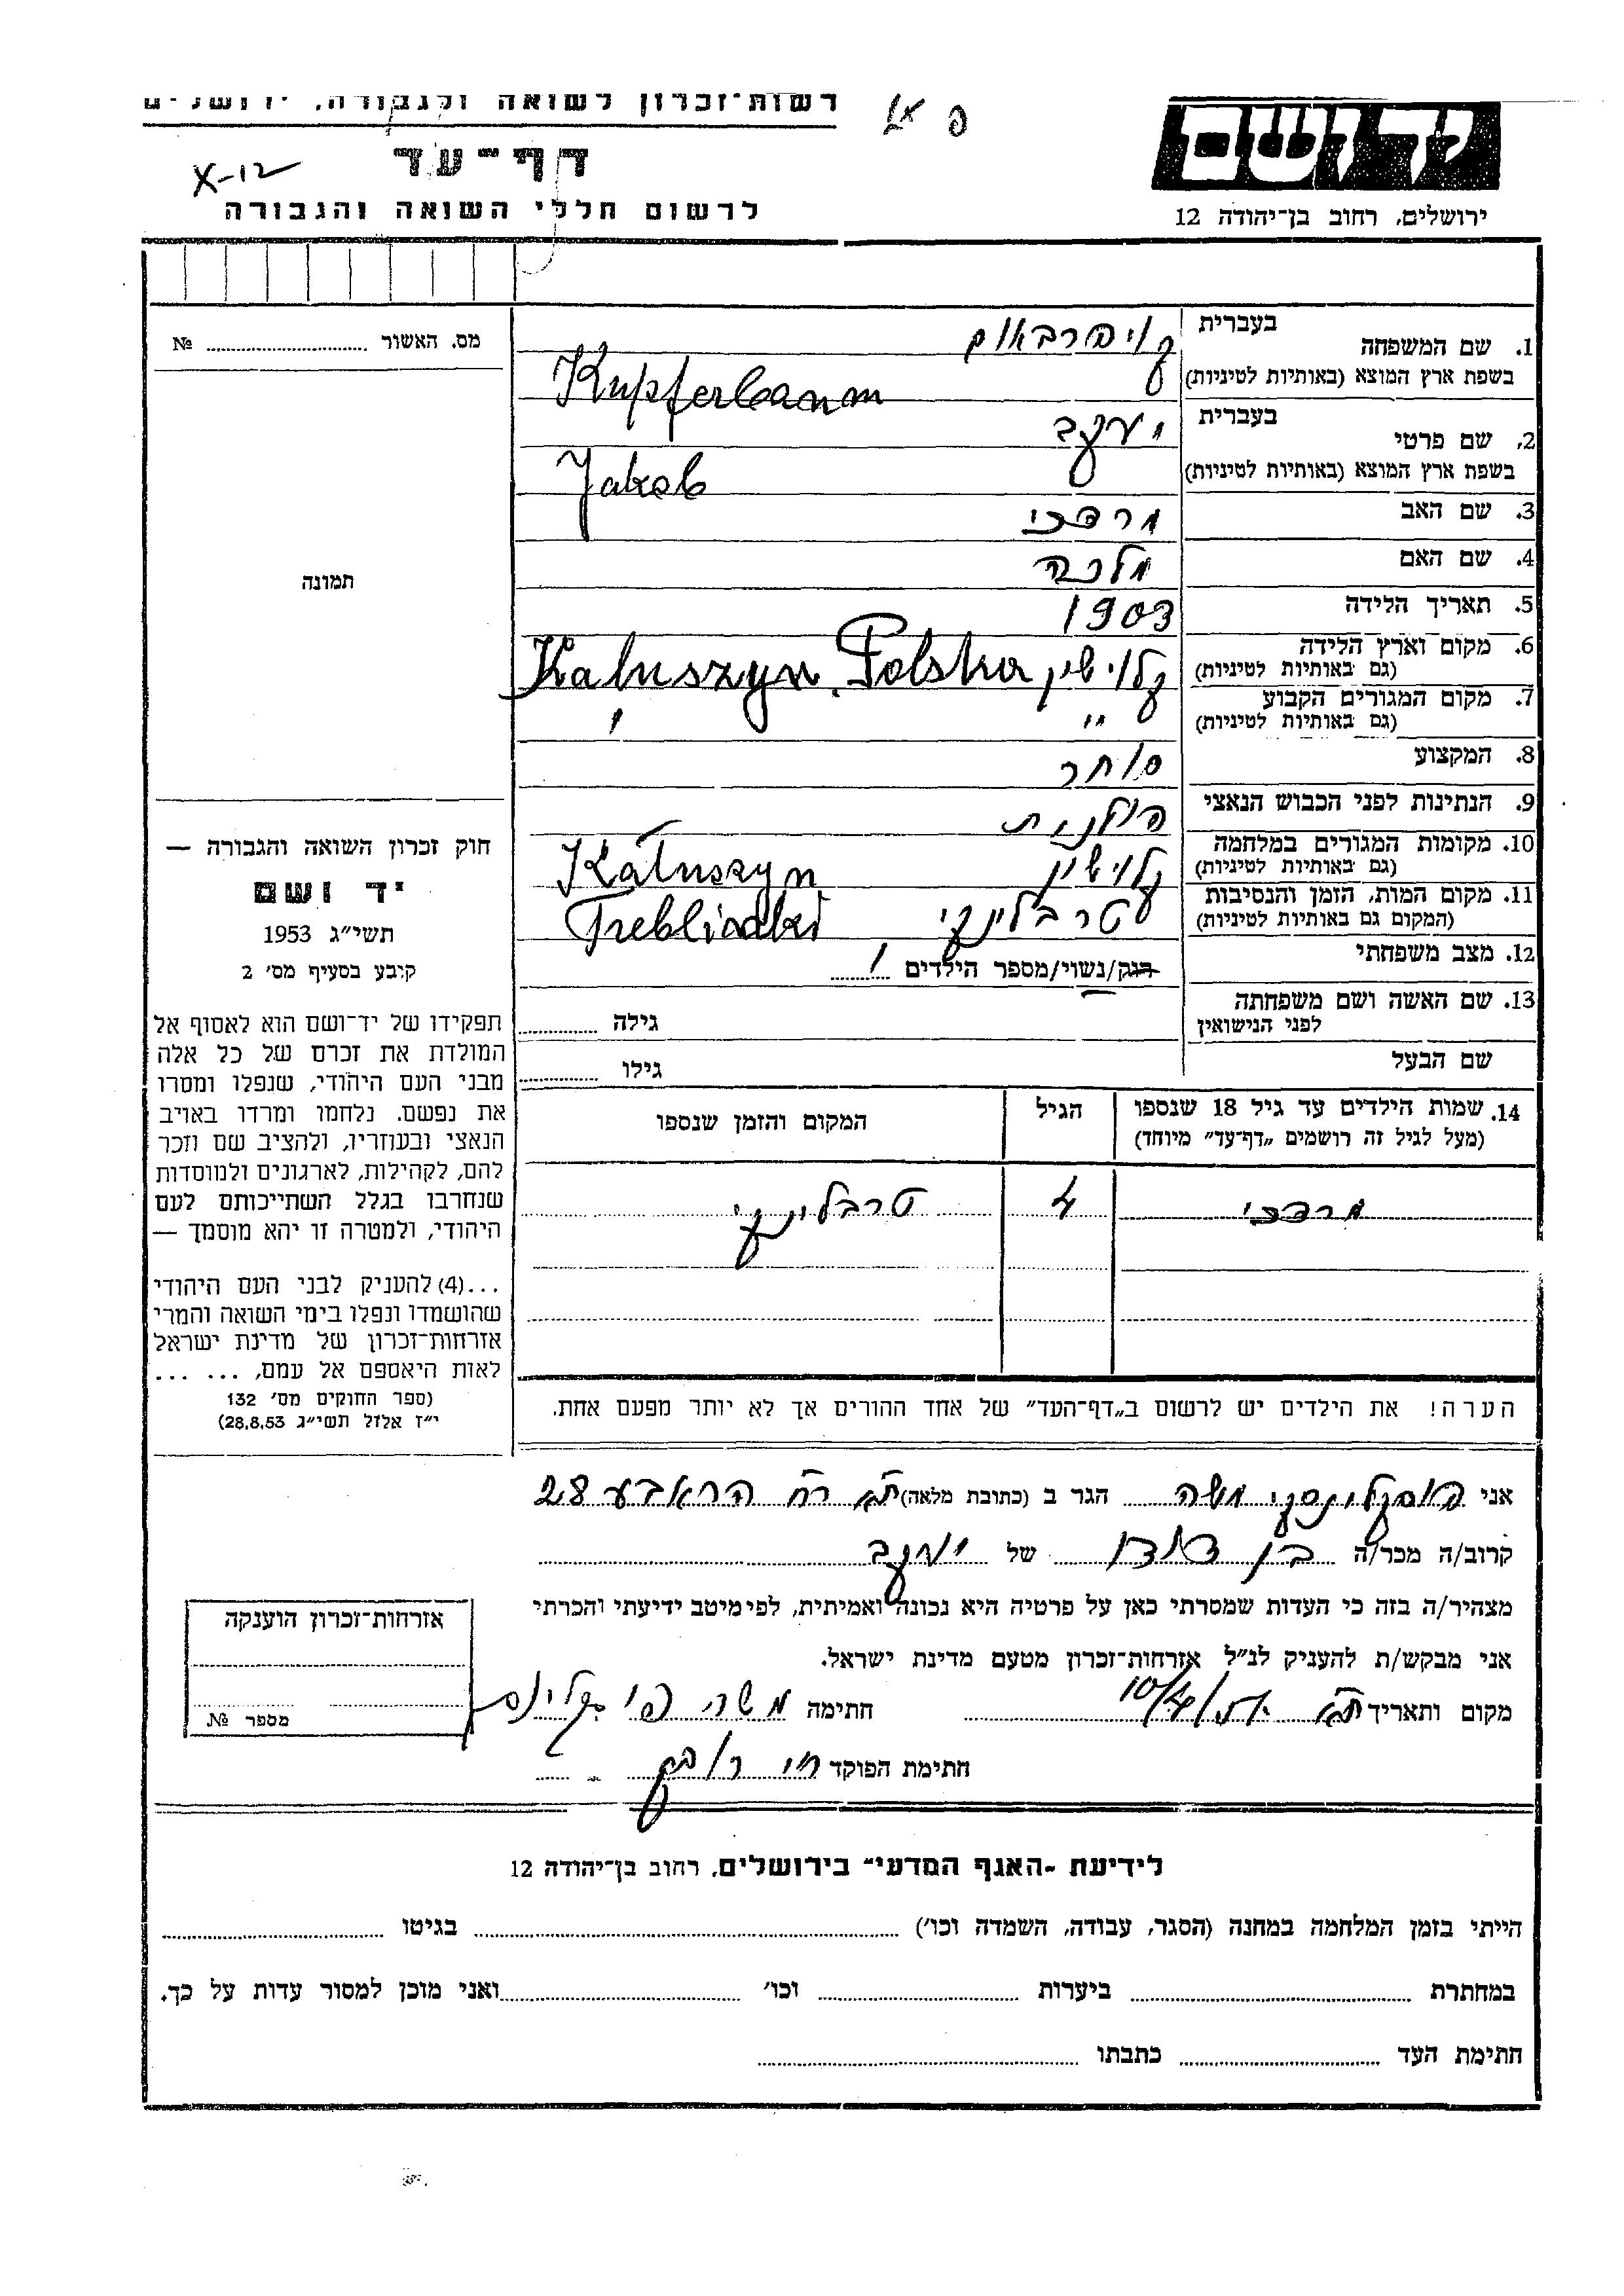 רשות־זכרון לשואה ולגבורה, ירושלים
יד ושם
דף־עד
X-12
לרשום חללי השואה והגבורה
ירושלים, רחוב בן־יהודה 12
מס. האשור № ........
תמונה
חוק זכרון השואה והגבורה —
יד ושם
תשי"ג 1953
קובע בסעיף מס' 2
תפקידו של יד־ושם הוא לאסוף אל
המולדת את זכרם של כל אלה
מבני העם היהודי, שנפלו ומסרו
את נפשם, נלחמו ומרדו באויב
הנאצי ובעוזריו, ולהציב שם וזכר
להם, לקהילות, לארגונים ולמוסדות
שנחרבו בגלל השתייכותם לעם
היהודי, ולמטרה זו יהא מוסמך —
...(4) להעניק לבני העם היהודי
שהושמדו ונפלו בימי השואה והמרי
אזרחות־זכרון של מדינת ישראל
לאות היאספם אל עמם, ... ...
(ספר החוקים מס' 132
י"ז אלול תשי"ג 28.8.53)
1. שם המשפחה בעברית קופרבאום
בשפת ארץ המוצא (באותיות לטיניות) Kupferbaum
2. שם פרטי בעברית יעקב
בשפת ארץ המוצא (באותיות לטיניות) Jakob
3. שם האב מרדכי
4. שם האם מלכה
5. תאריך הלידה 1903
6. מקום וארץ הלידה קלושין Kałuszyn, Polska
(גם באותיות לטיניות)
7. מקום המגורים הקבוע "
(גם באותיות לטיניות)
8. המקצוע סוחר
9. הנתינות לפני הכבוש הנאצי פולנית
10. מקומות המגורים במלחמה קלושין Kałuszyn
(גם באותיות לטיניות)
11. מקום המות, הזמן והנסיבות טרבלינקי
(המקום גם באותיות לטיניות)
12. מצב משפחתי רווק/נשוי/מספר הילדים 1
13. שם האשה ושם משפחתה גילה
לפני הנישואין
שם הבעל גילו
14. שמות הילדים עד גיל 18 שנספו הגיל המקום והזמן שנספו
(מעל לגיל זה רושמים "דף־עד" מיוחד)
מרדכי 4 טרבלינקי
הערה! את הילדים יש לרשום ב"דף־העד" של אחד ההורים אך לא יותר מפעם אחת.
אני משה הגר ב (כתובת מלאה) ת"א רח 28
קרוב/ה מכר/ה בן דודו של יעקב
מצהיר/ה בזה כי העדות שמסרתי כאן על פרטיה היא נכונה ואמיתית, לפי מיטב ידיעתי והכרתי
אני מבקש/ת להעניק לנ"ל אזרחות־זכרון מטעם מדינת ישראל.
מקום ותאריך ת"א 10/4 חתימה משה
חתימת הפוקד
אזרחות־זכרון הוענקה
מספר №
לידיעת "האגף המדעי" בירושלים, רחוב בן־יהודה 12
הייתי בזמן המלחמה במחנה (הסגר, עבודה, השמדה וכו') ........ בגיטו ........
במחתרת ........ ביערות ........ וכו' ........ ואני מוכן למסור עדות על כך.
חתימת העד ........ כתבתו ........